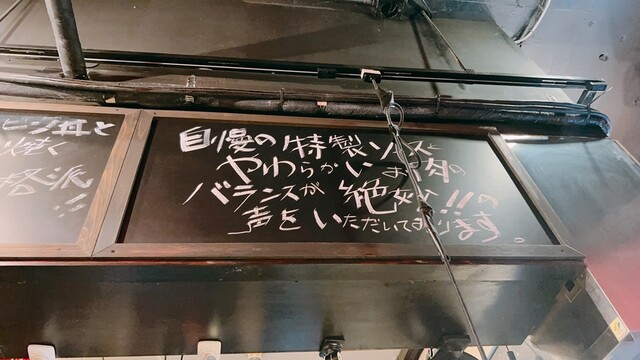 ビン丼と
焼く
格派
!!
自慢の特製ソースと
やわらかいお肉の
バランスが絶妙!!の
声をいただいております。